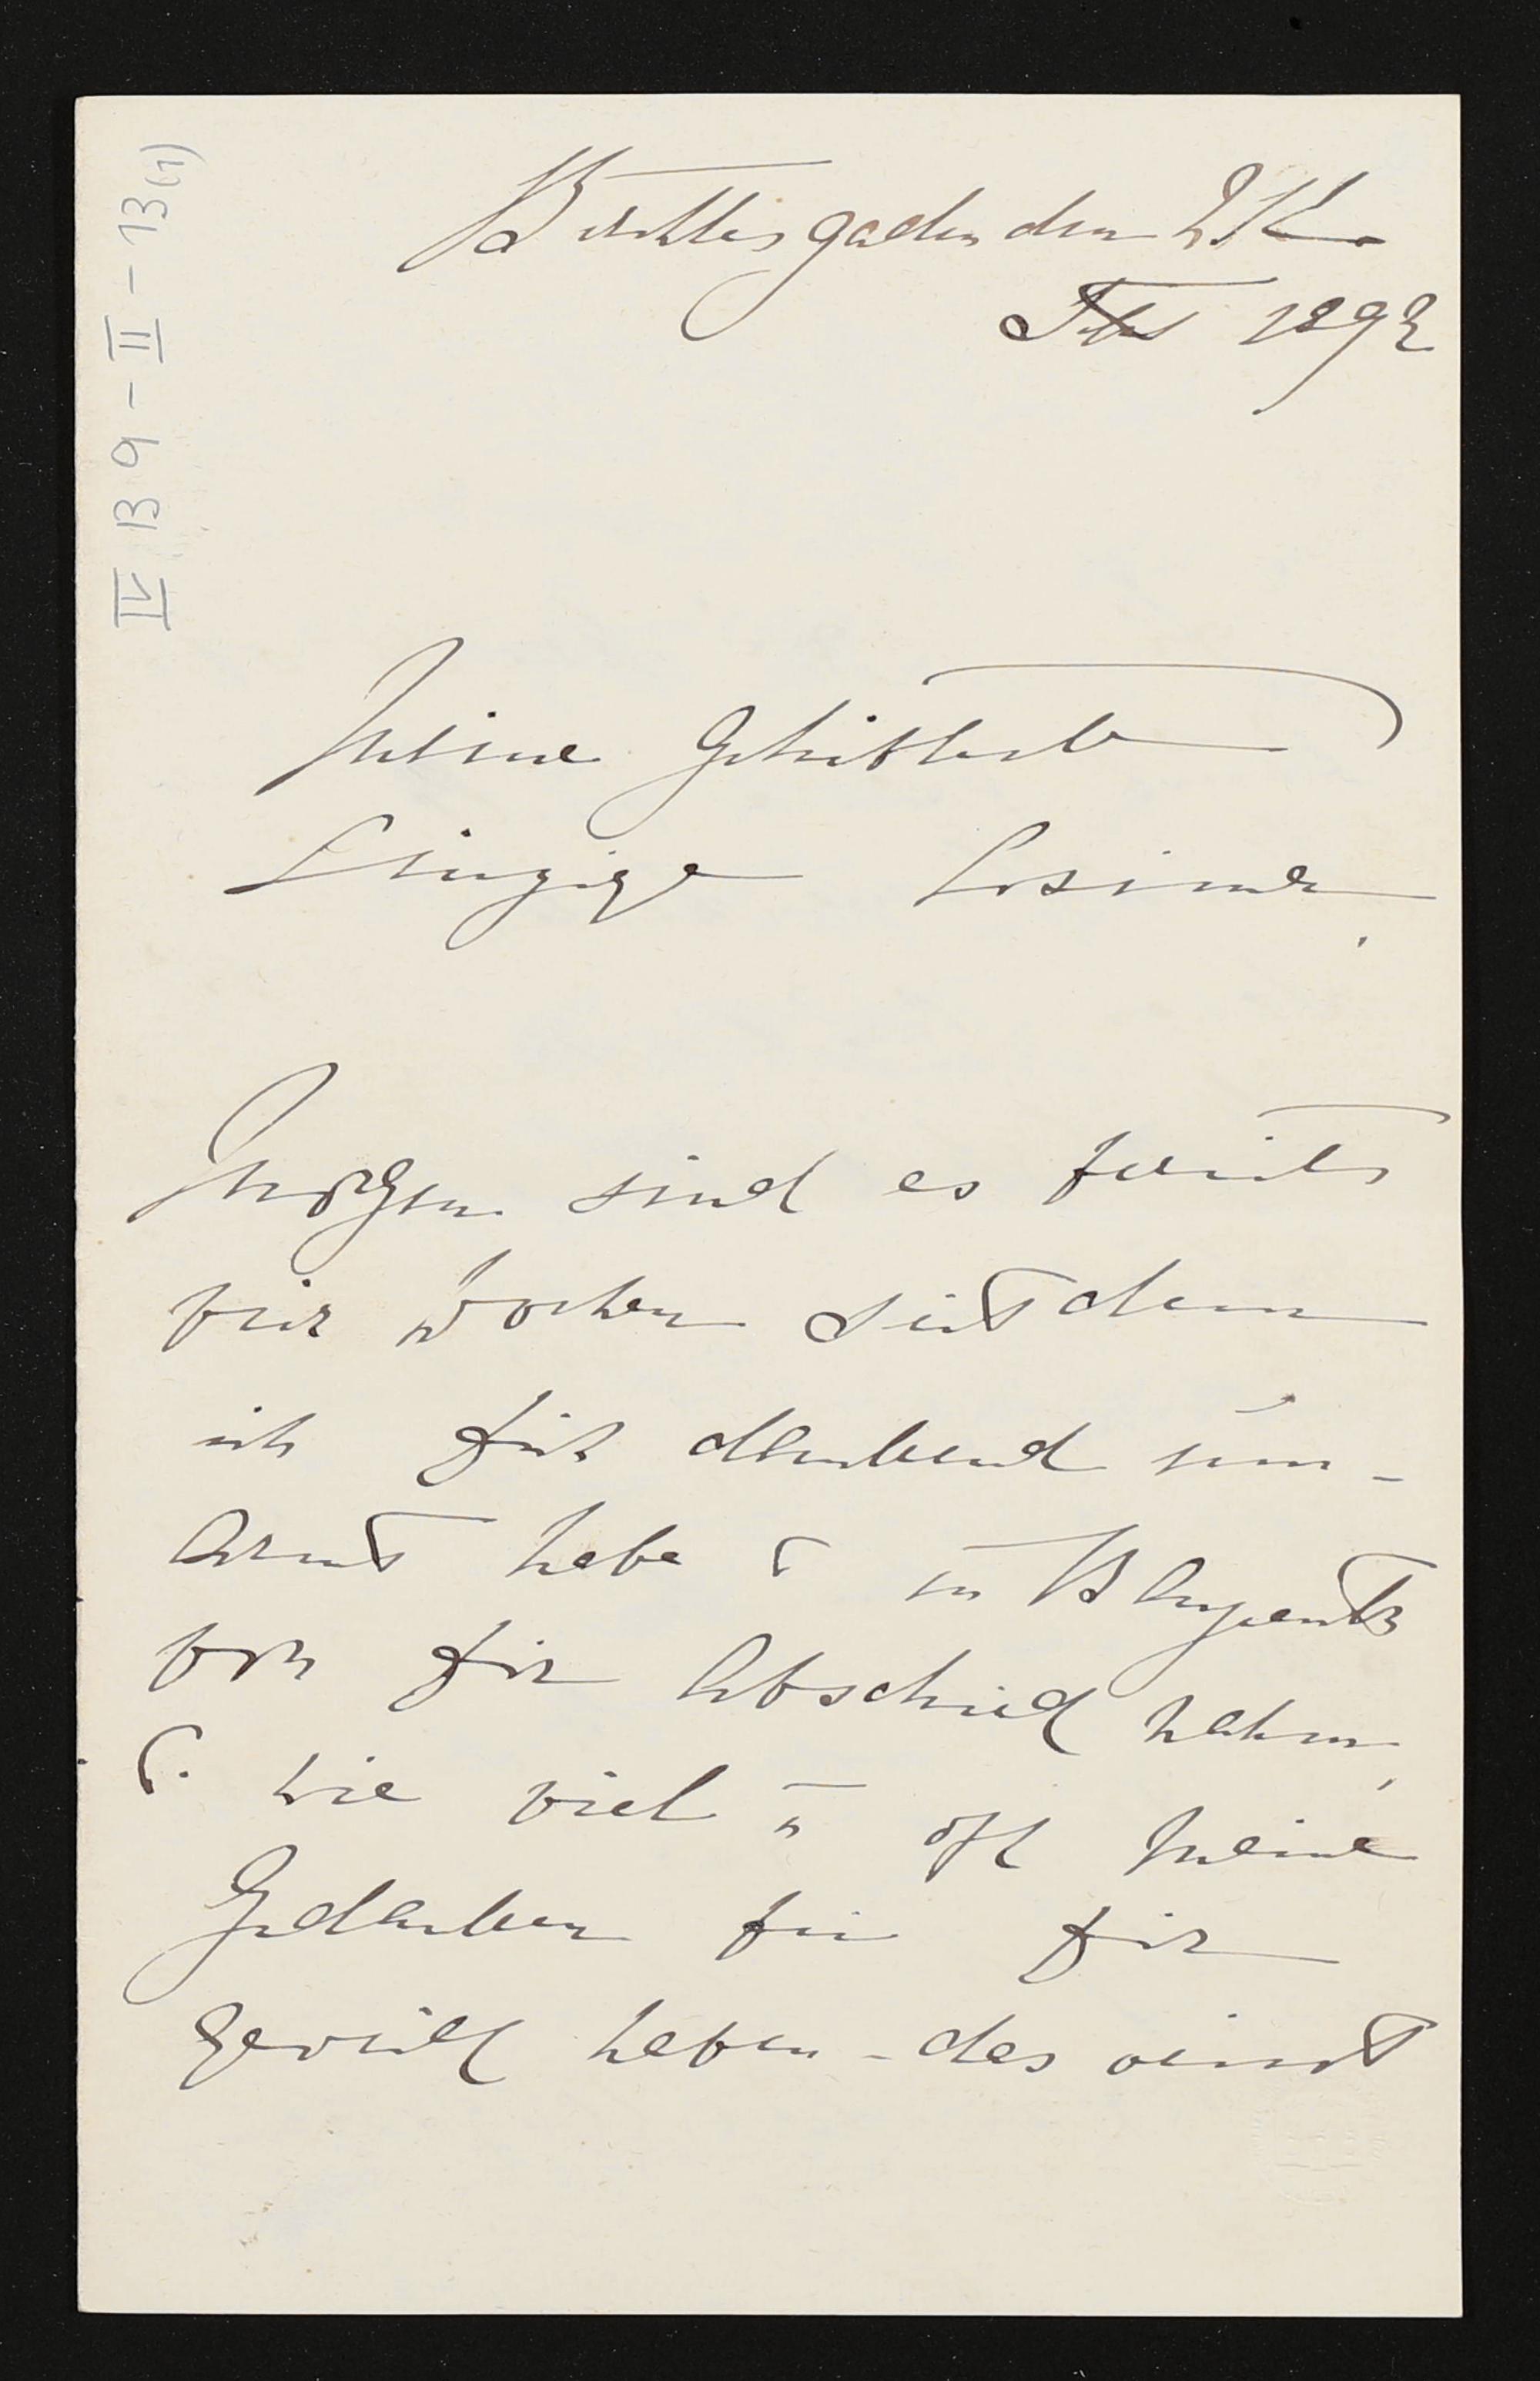 IV B 9 – II – 13(1)
Berchtesgaden den
1892
Meine Geliebteste
Einzige Cosima,
Morgen sind es bereits
vier Wochen seitdem
ich dich dankend um-
armt habe & in Bayreuth
von dir Abschied nahm,
&. wie viel u oft meine
Gedanken bei dir
geweilt haben – das